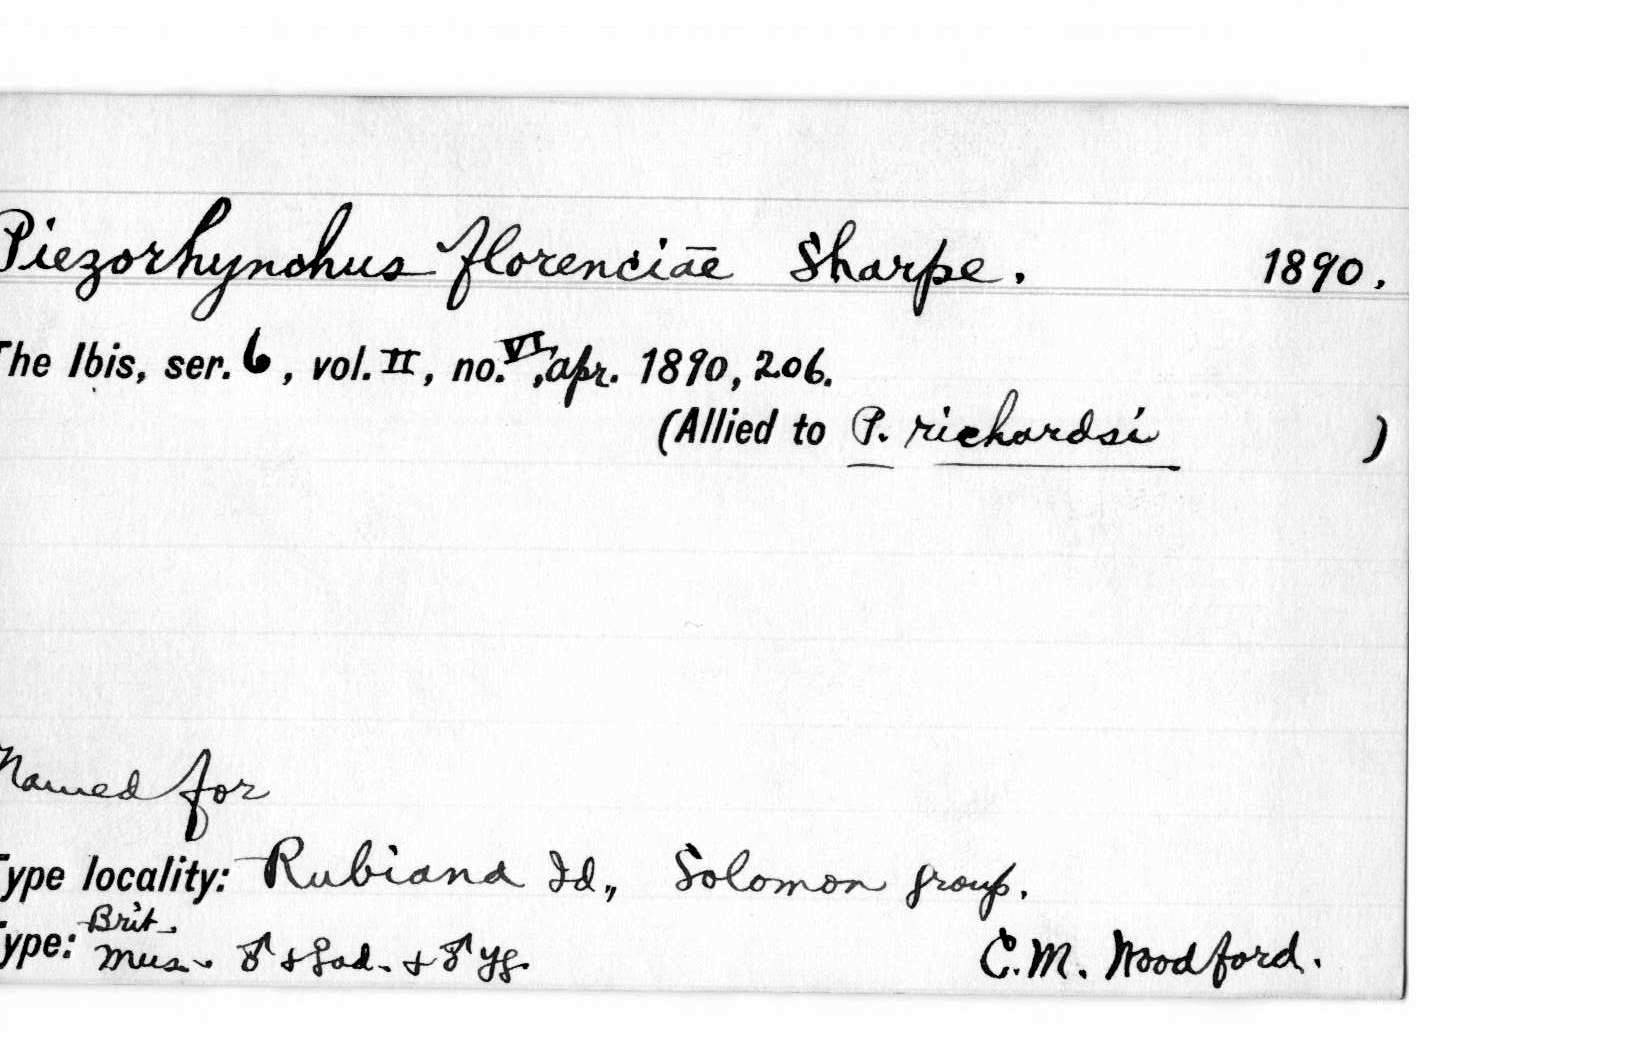 Piezorhynchus florenciae Sharpe. 1890.
The Ibis, ser. 6, vol. II, no. VI, apr. 1890, 206.
(Allied to P. richardsi )
Named for
Type locality: Rubiana Id., Solomon group.
Type: Brit. Mus. ♂ + ♀ ad. + ♂ yg. C.M. Woodford.